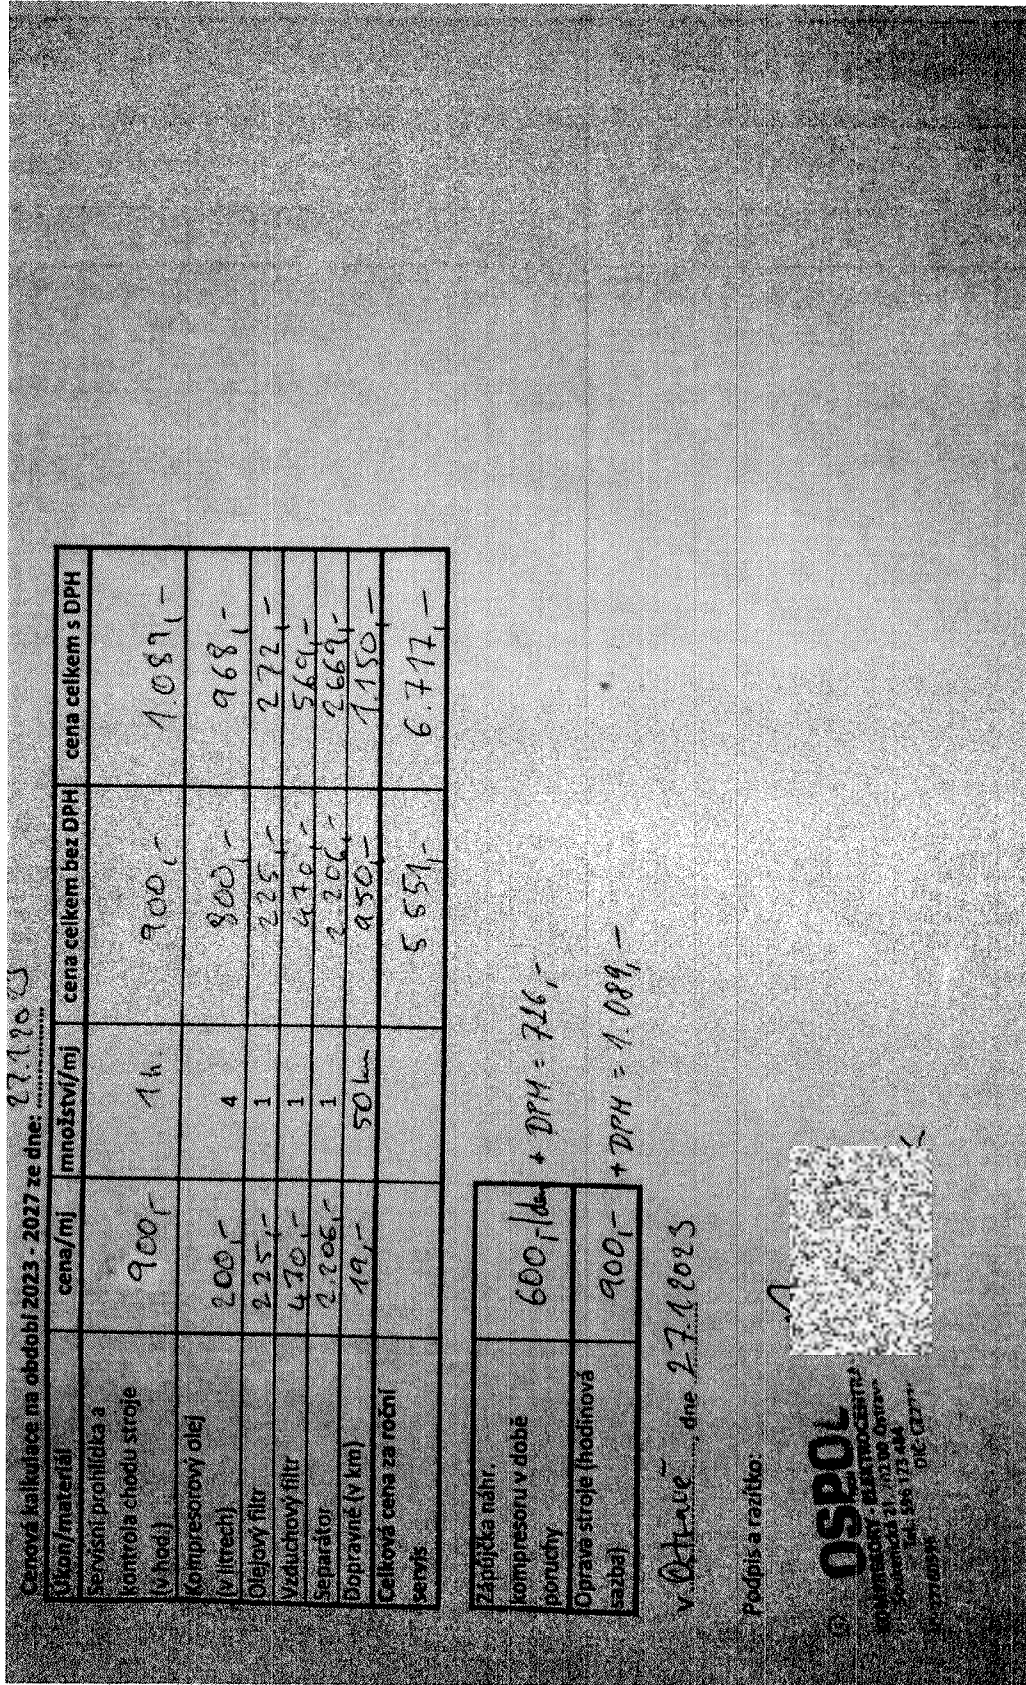 Cenová kalkulace na období 2023 - 2027 ze dne: 27.1.2023
Úkon/materiál cena/mj množství/mj cena celkem bez DPH cena celkem s DPH
Servisní prohlídka a
kontrola chodu stroje
(v hod.) 900,- 1 h. 900,- 1.089,-
Kompresorový olej
(v litrech) 200,- 4 800,- 968,-
Olejový filtr 225,- 1 225,- 272,-
Vzduchový filtr 470,- 1 470,- 569,-
Separátor 2.206,- 1 2.206,- 2669,-
Dopravné (v km) 19,- 50 km 950,- 1.150,-
Celková cena za roční
servis 5 551,- 6.717,-
Zápůjčka náhr.
kompresoru v době
poruchy 600,-/den + DPH = 726,-
Oprava stroje (hodinová
sazba) 900,- + DPH = 1.089,-
v Ostravě, dne 27.1.2023
Podpis a razítko:
OSPOL
KOMPRESORY - ELEKTROCENTRÁLY
702 00 Ostrava
Tel.: 596 173 484